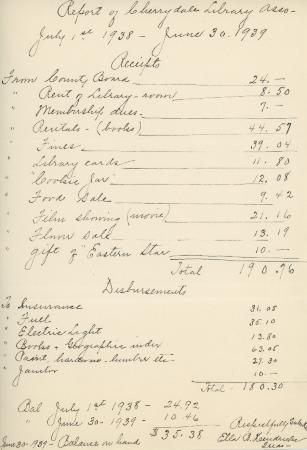 Report of Cherrydale Library Asso-
July, 1st 1938 - June 30. 1939
Receipts
From County Board 24. —
" Rent of Library - room 8.50
" Membership dues 7. —
" Rentals - (books) 44.57
" Fines 39.04
" Library cards 11.80
" "Cookie Jar" 12.08
" Food Sale 9.42
" Film showing (movie) 21.16
" Flower sale 13.19
" gift of "Eastern Star 10. —
Total 190.76
Disbursements
To Insurance 31.05
" Fuel 35.10
" Electric Light 13.80
" Books + Geographic 63.05
" Paint, hardware - lumber etc - 27.30
" Janitor 10. —
Total - 180.30
Bal July 1st 1938 - 24.92
" June 30. 1939 - 10.46
June 30 - 1939 - Balance on hand $35.38
Respectfully
Ella B.
Treas -